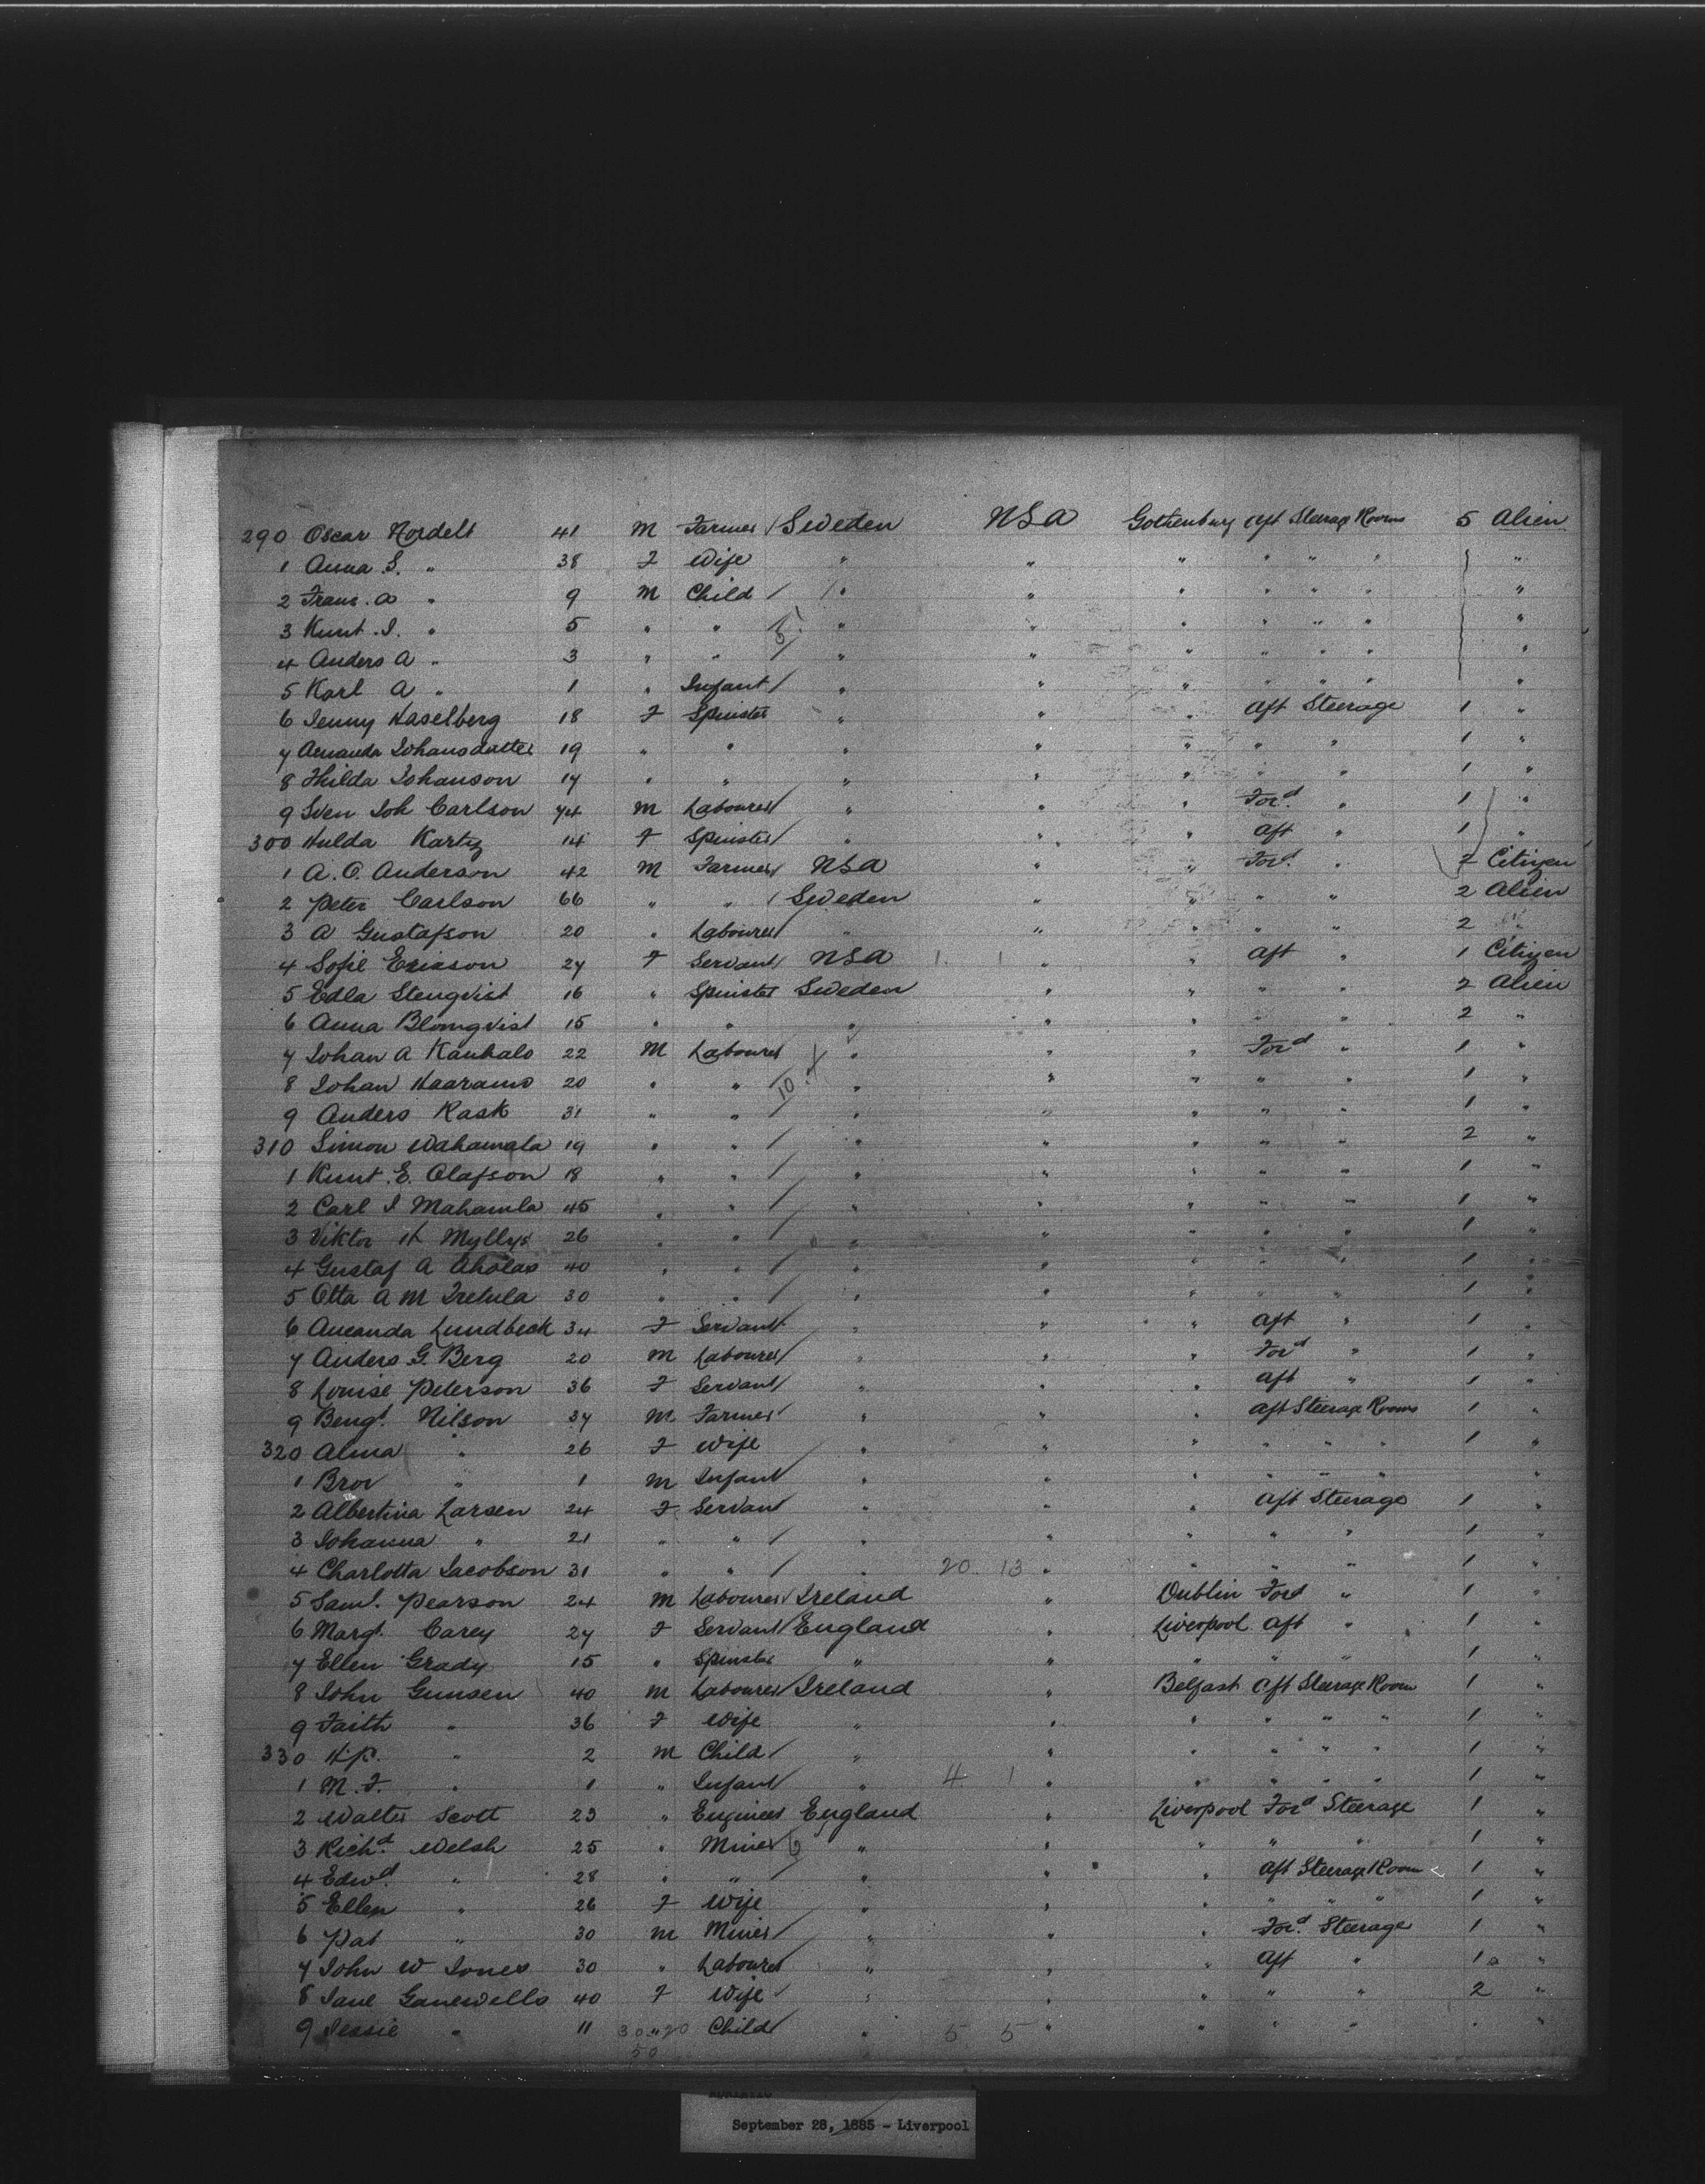 290 Oscar Nordell 41 M Farmer / Sweden USA Gothenburg Aft Steerage Rooms 5 Alien
1 Anna S. " 38 F Wife " " " " " " "
2 Frans. A " 9 M Child / / " " " " " " "
3 Knut. I. " 5 " " 5 / " " " " " " "
4 Anders A " 3 " " / " " " " " " "
5 Karl A " 1 " Infant / " " " " " " "
6 Jenny Haselberg 18 F Spinster " " " Aft Steerage 1 "
7 Amanda Johansdatter 19 " " " " " " " 1 "
8 Thilda Johanson 17 " " " " " " " 1 "
9 Sven Joh Carlson 74 M Labourer / " " " Ford " 1 "
300 Hulda Kartz 14 F Spinster / " " " Aft " 1 "
1 A. O. Anderson 42 M Farmer / USA " " Ford " 2 Citizen
2 Peter Carlson 66 " " / Sweden " " " " 2 Alien
3 A Gustafson 20 " Labourer / " " " " " 2 "
4 Sofie Ericson 27 F Servant / USA 1. 1 " " Aft " 1 Citizen
5 Edla Stenqvist 16 " Spinster Sweden " " " " 2 Alien
6 Anna Blomqvist 15 " " " " " " " 2 "
7 Johan A Kauhalo 22 M Labourer / " " " Ford " 1 "
8 Johan Haaramo 20 " " 10 / " " " " " 1 "
9 Anders Rask 31 " " / " " " " " 1 "
310 Simon Wahamala 19 " " / " " " " " 2 "
1 Knut. E. Olafson 18 " " / " " " " " 1 "
2 Carl I Mahamla 45 " " / " " " " " 1 "
3 Viktor H Myllys 26 " " / " " " " " 1 "
4 Gustaf A Aholas 40 " " / " " " " " 1 "
5 Otta A M 30 " " / " " " " " 1 "
6 Amanda Lundbeck 34 F Servant " " " Aft " 1 "
7 Anders G. Berg 20 M Labourer / " " " Ford " 1 "
8 Louise Peterson 36 F Servant / " " " Aft " 1 "
9 Bengt. Nilson 37 M Farmer / " " " Aft Steerage Rooms 1 "
320 Alma " 26 F Wife " " " " " " 1 "
1 Bror " 1 M Infant / " " " " " " "
2 Albertina Larsen 24 F Servant " " " Aft Steerage 1 "
3 Johanna " 21 " " / " " " " " 1 "
4 Charlotta Jacobson 31 " " / " 20 13 " " " " 1 "
5 Saml. Pearson 24 M Labourer / Ireland " Dublin Ford " 1 "
6 Margt. Carey 27 F Servant / England " Liverpool Aft " 1 "
7 Ellen Grady 15 " Spinster " " " " " 1 "
8 John Gunsen 40 M Labourer / Ireland " Belfast Aft Steerage Room 1 "
9 Faith " 36 F Wife " " " " " " 1 "
330 H.P. " 2 M Child / " " " " " " 1 "
1 M. F. " 1 " Infant / " 4 1 " " " " " 1 "
2 Walter Scott 23 " Engineer England " Liverpool Ford Steerage 1 "
3 Richd. Welsh 25 " Miner 6 " " " " " 1 "
4 Edwd. " 28 " " / " " " Aft Steerage Room 1 "
5 Ellen " 26 F Wife " " " " " " 1 "
6 Pat " 30 M Miner / " " " Ford Steerage 1 "
7 John W Jones 30 " Labourer / " " " Aft " 1 "
8 Jane 40 F Wife " " " " " 2 "
9 Jessie " 11 30 " 20 Child / " 5 5 " " " " " "
50
September 28, 1885 - Liverpool